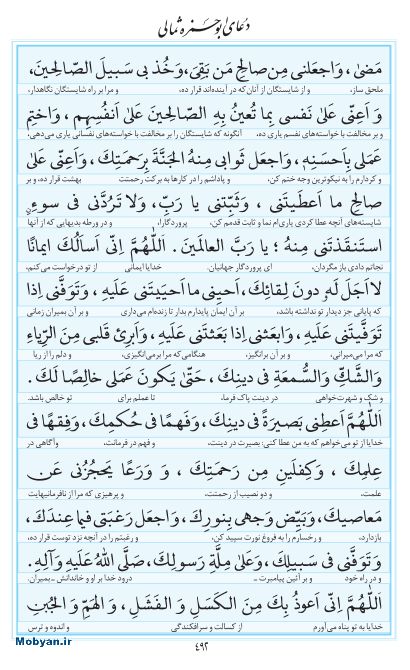 دعای ابوحمزه ثمالی
مَضىٰ، وَاجعَلنى مِن صالِحِ مَن بَقِىَ، وَخُذ بى سَبيلَ الصّالِحينَ،
ملحق ساز، و از شایستگان از آنان که در آینده‌اند قرار ده، و مرا بر راه شایستگان نگاهدار،
وَ اَعِنّى عَلىٰ نَفسى بِما تُعينُ بِهِ الصّالِحينَ عَلىٰ اَنفُسِهِم، وَاختِم
و بر مخالفت با خواسته‌های نفسم یاری ده، آنگونه که شایستگان را بر مخالفت با خواسته‌های نفسانی یاری می‌دهی؛
عَمَلى بِاَحسَنِهِ، وَاجعَل ثَوابى مِنهُ الجَنَّةَ بِرَحمَتِكَ، وَاَعِنّى عَلىٰ
و کردارم را به نیکوترین وجه ختم کن، و پاداشم را در کارها به برکت رحمتت بهشت قرار ده، و بر
صالِحِ ما اَعطَيتَنى، وَثَبِّتنى يا رَبِّ، وَلا تَرُدَّنى فى سوءٍ
شایسته‌های آنچه عطا کردی یاری‌ام نما و ثابت قدمم کن، پروردگارا، و در ورطه بدیهایی که از آنها
استَنقَذتَنى مِنهُ؛ يا رَبَّ العالَمينَ. اَللّٰهُمَّ اِنّى اَسأَلُكَ ايمانًا
نجاتم دادی باز مگردان، ای پروردگار جهانیان. خدایا ایمانی از تو درخواست می‌کنم،
لااَجَلَ لَهُ دونَ لِقائِكَ، اَحيِنى ما اَحيَيتَنى عَلَيهِ، وَتَوَفَّنى اِذا
که پایانی جز دیدار تو نداشته باشد، بر آن ایمان پایدارم بدار تا زنده‌ام می‌داری و بر آن بمیران زمانی
تَوَفَّيتَنى عَلَيهِ، وَابعَثنى اِذا بَعَثتَنى عَلَيهِ، وَاَبرِئ قَلبى مِنَ الرِّياءِ
که مرا می‌میرانی، و بر آن برانگیز، هنگامی که مرا برمی‌انگیزی، و دلم را از ریا
وَالشَّكِّ وَالسُّمعَةِ فى دينِكَ، حَتّىٰ يَكونَ عَمَلى خالِصًا لَكَ.
و شک و شهرت‌خواهی در دینت پاک فرما، تا عملم برای تو خالص باشد.
اَللّٰهُمَّ اَعطِنى بَصيرَةً فى دينِكَ، وَفَهمًا فى حُكمِكَ، وَفِقهًا فى
خدایا از تو می‌خواهم که به من عطا کنی: بصیرت در دینت، و فهم در فرمانت، و آگاهی در
عِلمِكَ، وَكِفلَينِ مِن رَحمَتِكَ، وَ وَرَعًا يَحجُزُنى عَن
علمت، و دو نصیب از رحمتت، و پرهیزی که مرا از نافرمانیهایت
مَعاصيكَ، وَبَيِّض وَجهى بِنورِكَ، وَاجعَل رَغبَتى فيما عِندَكَ،
بازدارد، و رخسارم را به فروغ نورت سپید کن، و رغبتم را در آنچه نزد توست قرار ده،
وَتَوَفَّنى فى سَبيلِكَ، وَعَلىٰ مِلَّةِ رَسولِكَ، صَلَّى اللهُ عَلَيهِ وَآلِهِ.
و در راه خود و بر آئین پیامبرت ـ درود خدا بر او و خاندانش ـ بمیران.
اَللّٰهُمَّ اِنّى اَعوذُ بِكَ مِنَ الكَسَلِ وَ الفَشَلِ، وَالهَمِّ وَ الجُبنِ
خدایا به تو پناه می‌آورم از کسالت و سرافکندگی و اندوه و ترس
۴۹۲
Mobyan.ir